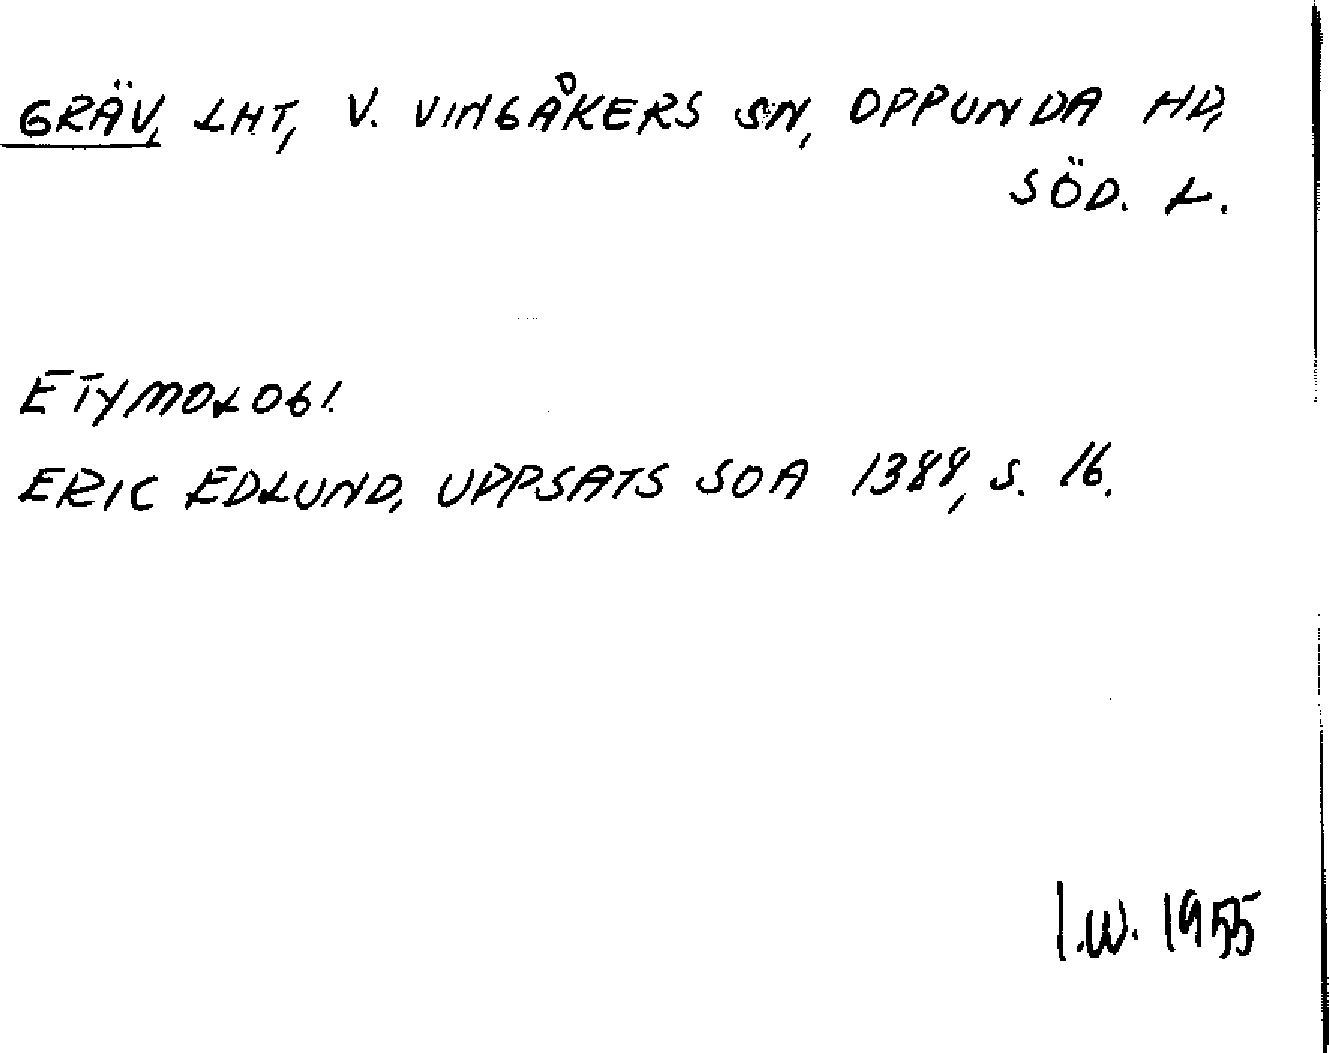 GRÄV, LHT, V. VINGÅKERS SN, OPPUNDA HD,
SÖD. L.
ETYMOLOGI.
ERIC EDLUND, UPPSATS SOA 1389, S. 16.
I.W. 1955